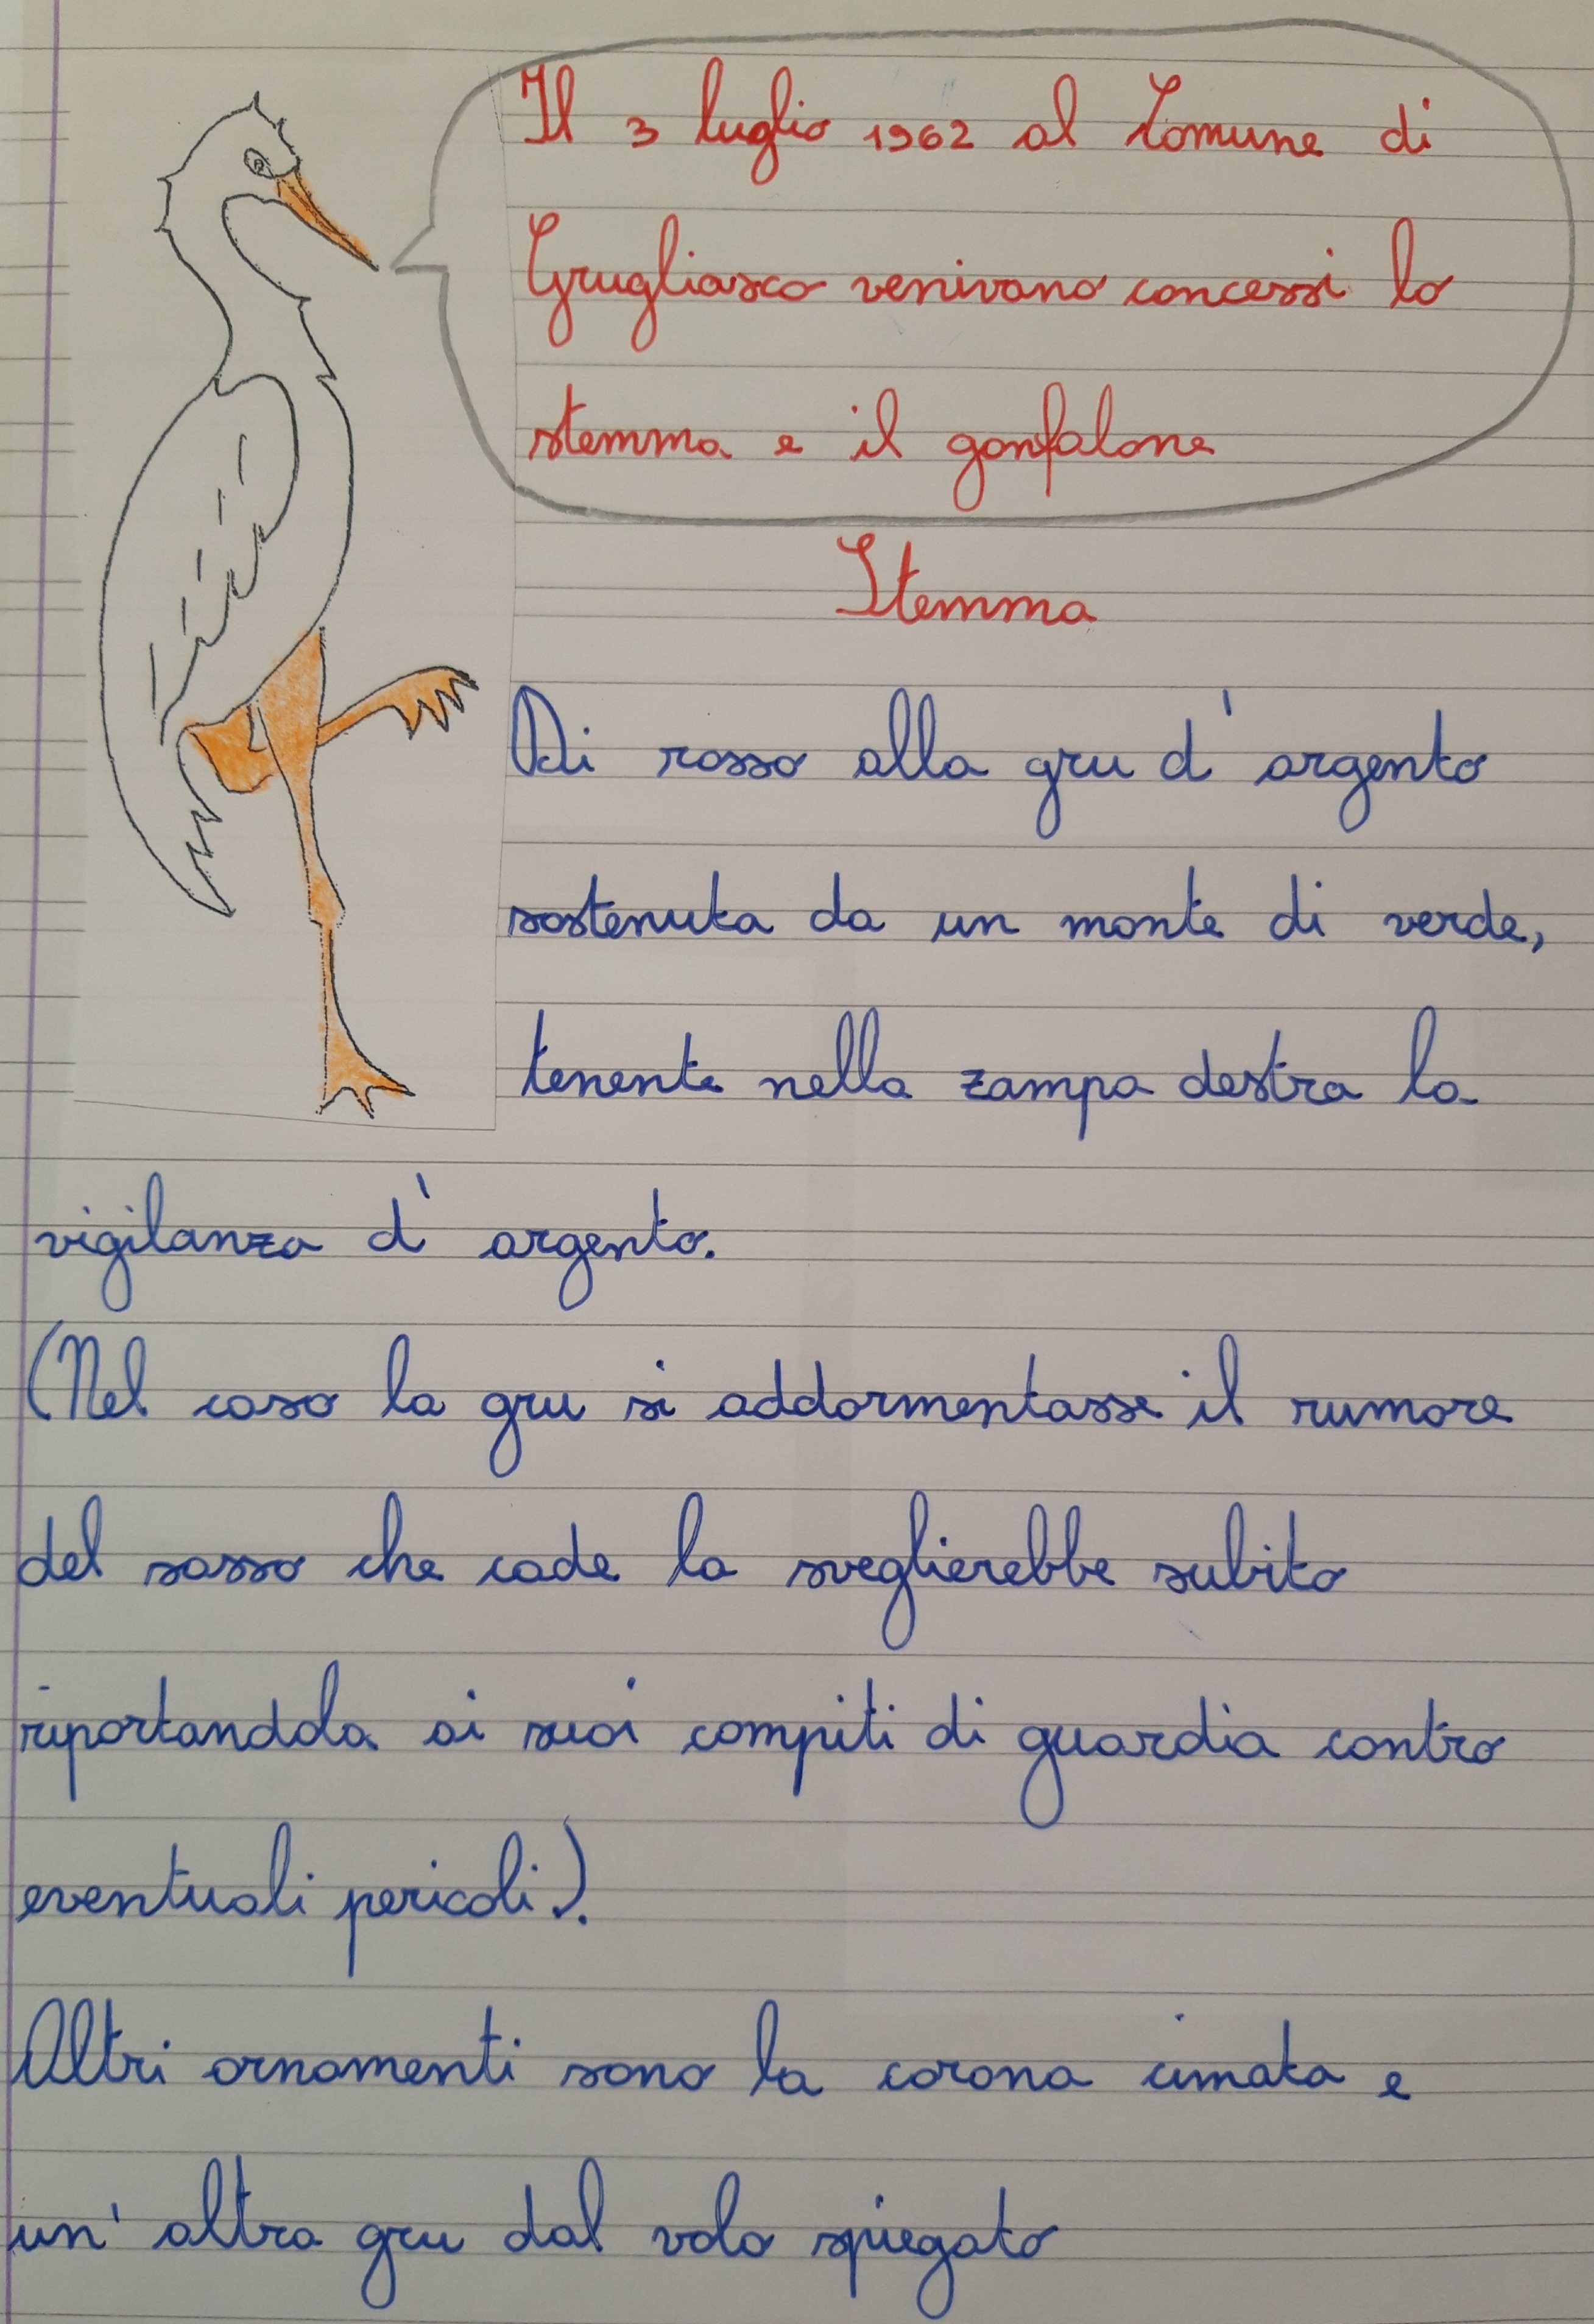 Il 3 luglio 1962 al Comune di
Grugliasco venivano concessi lo
stemma e il gonfalone
Stemma
Di rosso alla gru d'argento
sostenuta da un monte di verde,
tenente nella zampa destra la
vigilanza d'argento.
(Nel caso la gru si addormentasse il rumore
del sasso che cade la sveglierebbe subito
riportandola ai suoi compiti di guardia contro
eventuali pericoli).
Altri ornamenti sono la corona cimata e
un'altra gru dal volo spiegato